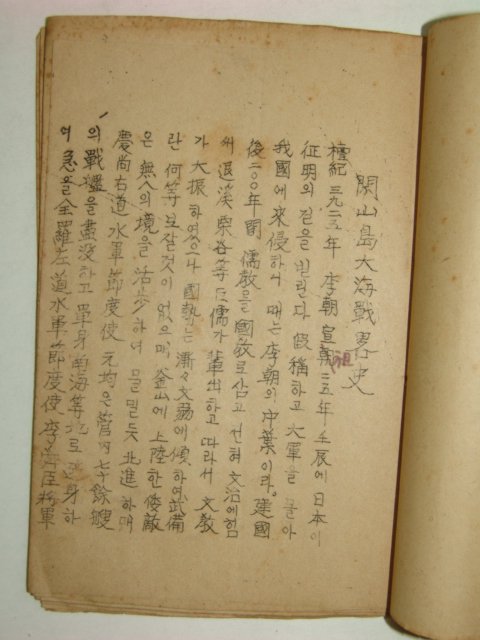 閑山島大海戰畧史
檀紀 三九二五年 李朝 宣祖 二五年 壬辰에 日本이
征明의 길을 빌린다 假稱하고 大軍을 몰아
我國에 來侵하니 때는 李朝의 中葉이라。建國
後 二〇〇年間 儒敎를 國敎로 삼고 文治에힘
써 退溪 栗谷等 巨儒가 輩出하고 따라서 文敎
가 大振하였으나 國勢는 漸々 文弱에 傾하여 武備
란 何等 보잘것이 없으매 釜山에 上陸한 倭敵
은 無人의 境을 活步하여 물밀듯 北進하매
慶尚右道 水軍節度使 元均은 管內 七十餘艘
의 戰艦을 盡没하고 單身 南海等地로 身하
여 急을 全羅左道水軍節度使 李舜臣將軍